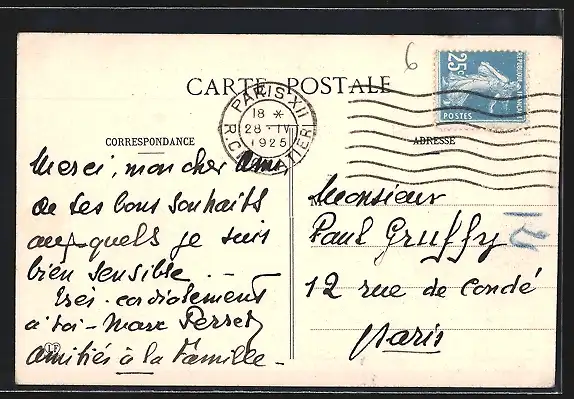 6
CARTE POSTALE
PARIS XII
18 *
28 · IV
1925
25c
RÉPUBLIQUE FRANÇAISE
POSTES
CORRESPONDANCE
ADRESSE
Merci, mon cher Ami
de tes bons souhaits
auxquels je suis
bien sensible
Très cordialement
à toi - Marc Perret
Amitiés à la Famille -
Monsieur
Paul Gruffy
12 rue de Condé
Paris